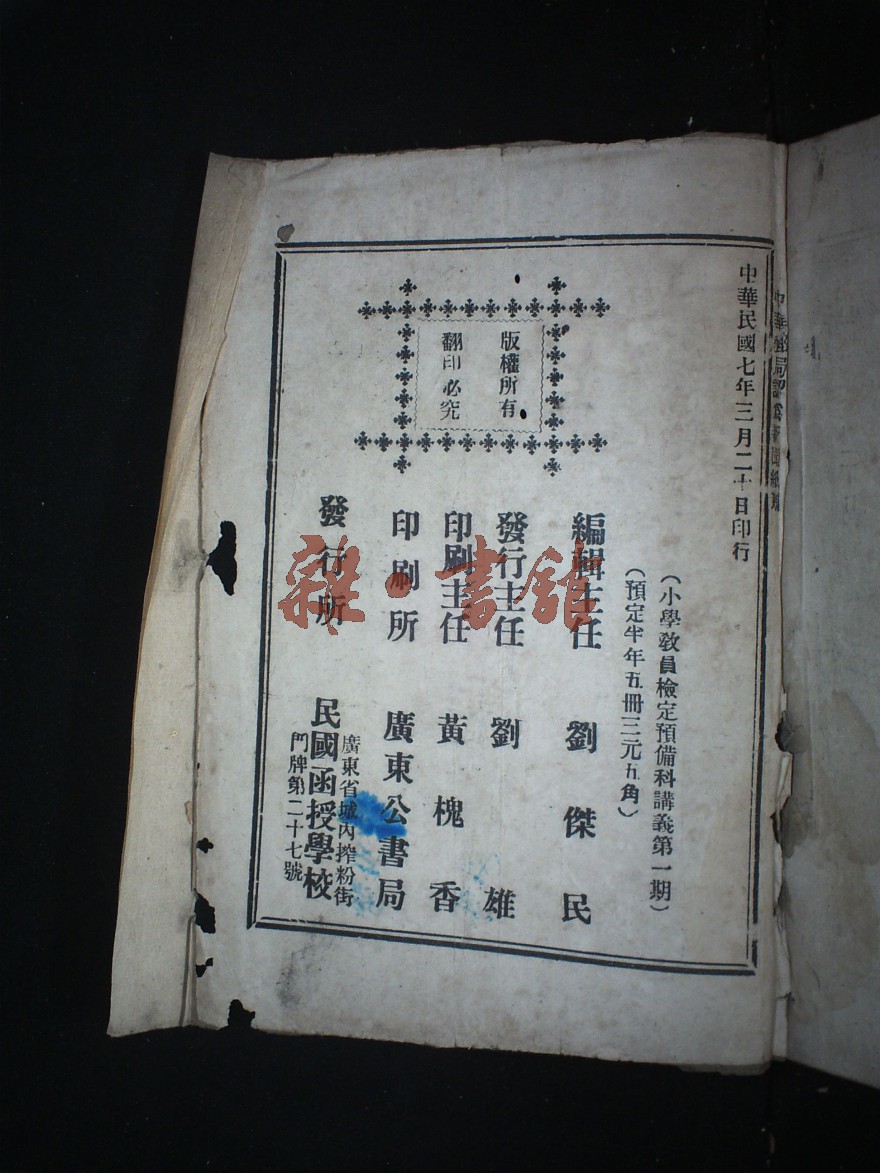 中華民國七年三月二十日印行
（小學教員檢定預備科講義第一期）
（預定半年五冊三元五角）
版權所有
翻印必究
編輯主任 劉傑民
發行主任 劉雄
印刷主任 黃槐香
印刷所 廣東公書局
發行所 民國函授學校
廣東省城內搾粉街
門牌第二十七號
雜·書館